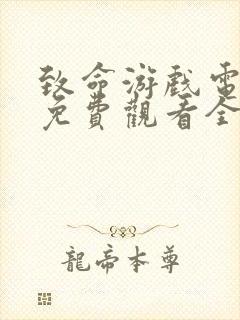 致命游戲電
免費觀看全
龍帝本尊